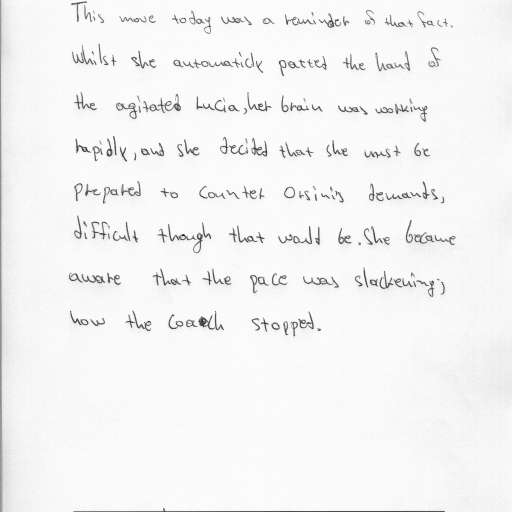 This move today was a reminder of that fact.
Whilst she automaticly patted the hand of
the agitated Lucia, her brain was working
rapidly, and she decided that she must be
prepared to counter Orsinis demands,
difficult though that would be. She became
aware that the pace was slackening;
now the coach stopped.